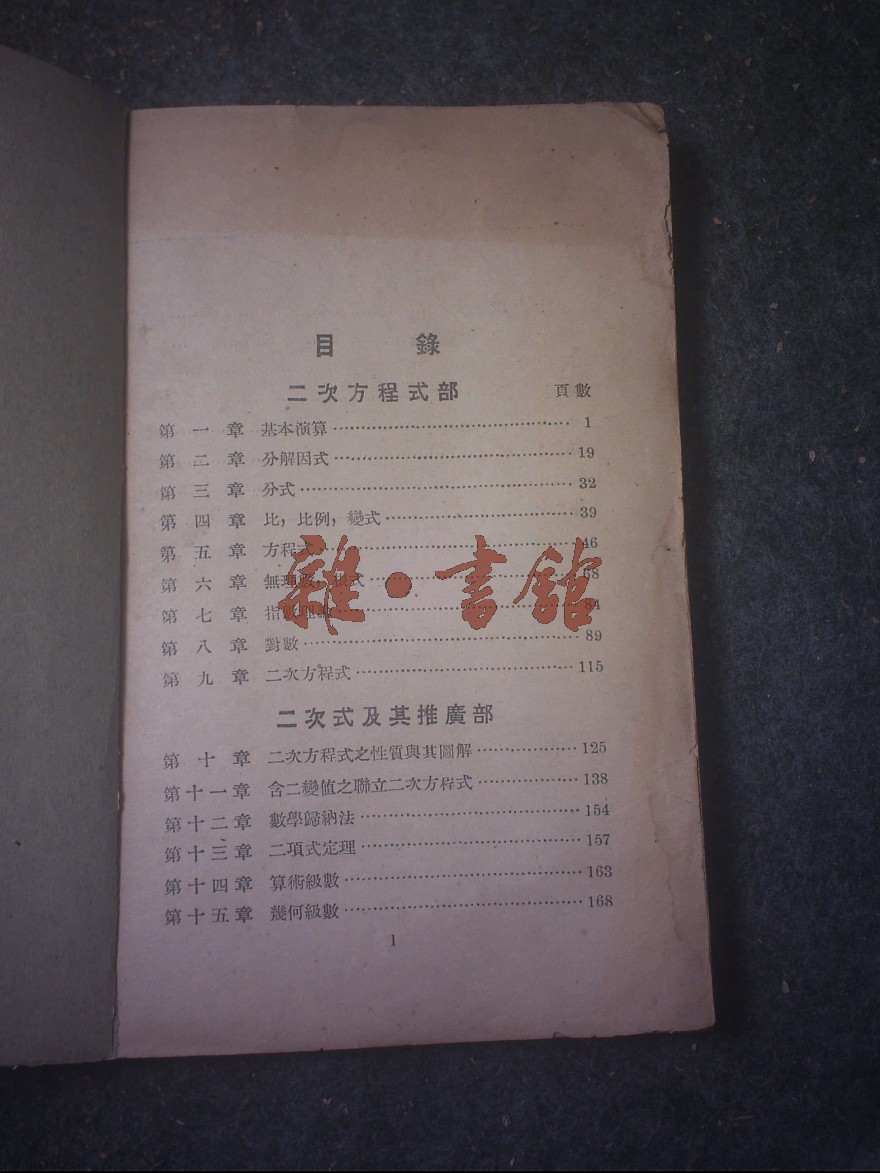 目 錄
二次方程式部 頁數
第一章 基本演算 1
第二章 分解因式 19
第三章 分式 32
第四章 比,比例,變式 39
第五章 方程式 46
第六章 無理數,根式 68
第七章 指數理論 84
第八章 對數 89
第九章 二次方程式 115
二次式及其推廣部
第十章 二次方程式之性質與其圖解 125
第十一章 含二變值之聯立二次方程式 138
第十二章 數學歸納法 154
第十三章 二項式定理 157
第十四章 算術級數 163
第十五章 幾何級數 168
1
雜·書館